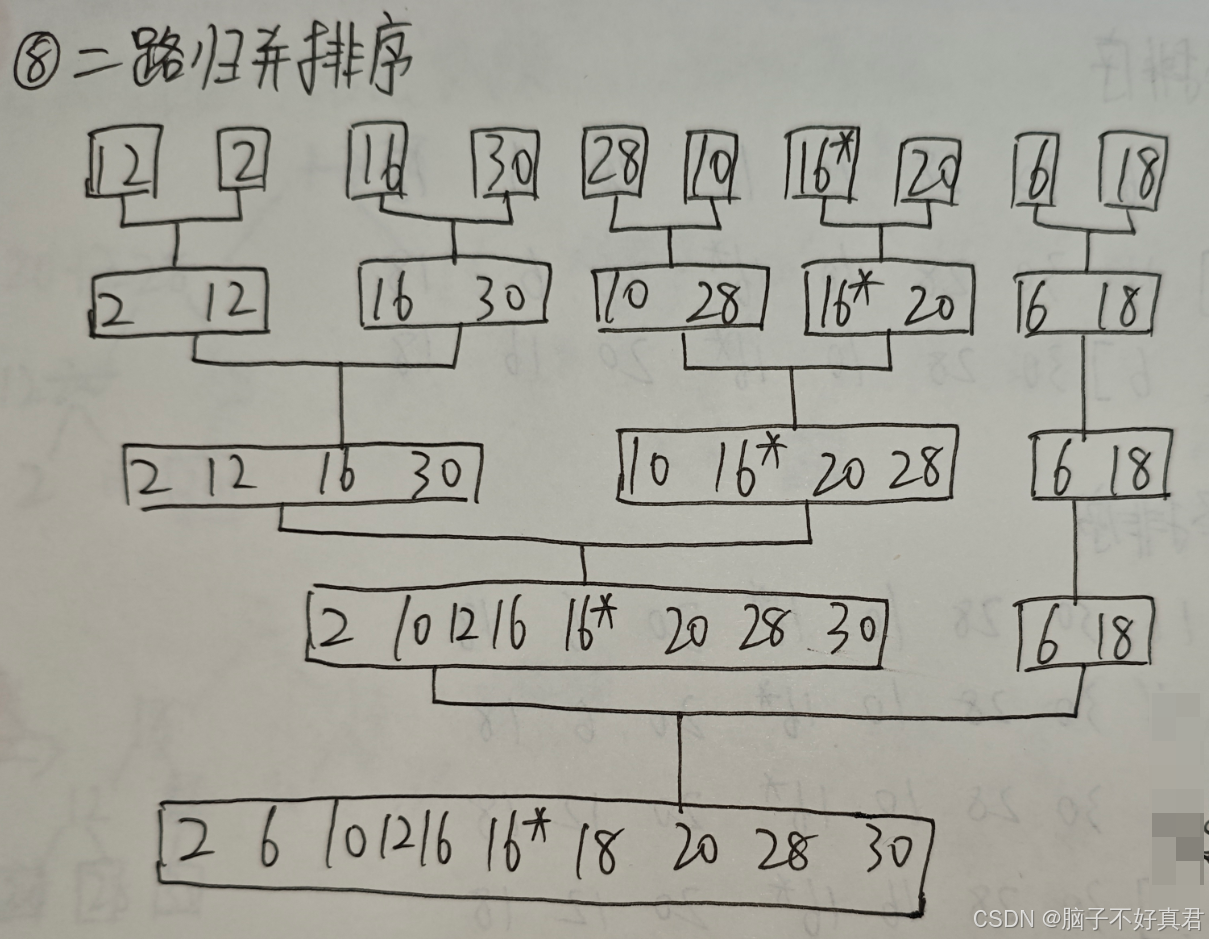 ⑧二路归并排序
12 2 16 30 28 10 16* 20 6 18
2 12 16 30 10 28 16* 20 6 18
2 12 16 30 10 16* 20 28 6 18
2 10 12 16 16* 20 28 30 6 18
2 6 10 12 16 16* 18 20 28 30
CSDN @脑子不好真君